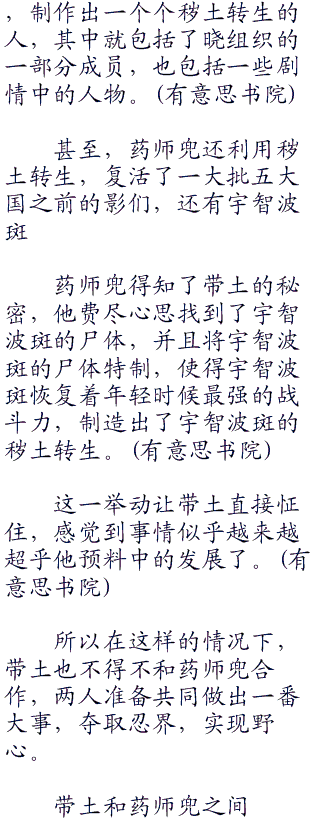 ，制作出一个个秽土转生的
人，其中就包括了晓组织的
一部分成员，也包括一些剧
情中的人物。(有意思书院)
甚至，药师兜还利用秽
土转生，复活了一大批五大
国之前的影们，还有宇智波
斑
药师兜得知了带土的秘
密，他费尽心思找到了宇智
波斑的尸体，并且将宇智波
斑的尸体特制，使得宇智波
斑恢复着年轻时候最强的战
斗力，制造出了宇智波斑的
秽土转生。(有意思书院)
这一举动让带土直接怔
住，感觉到事情似乎越来越
超乎他预料中的发展了。(有
意思书院)
所以在这样的情况下，
带土也不得不和药师兜合
作，两人准备共同做出一番
大事，夺取忍界，实现野
心。
带土和药师兜之间